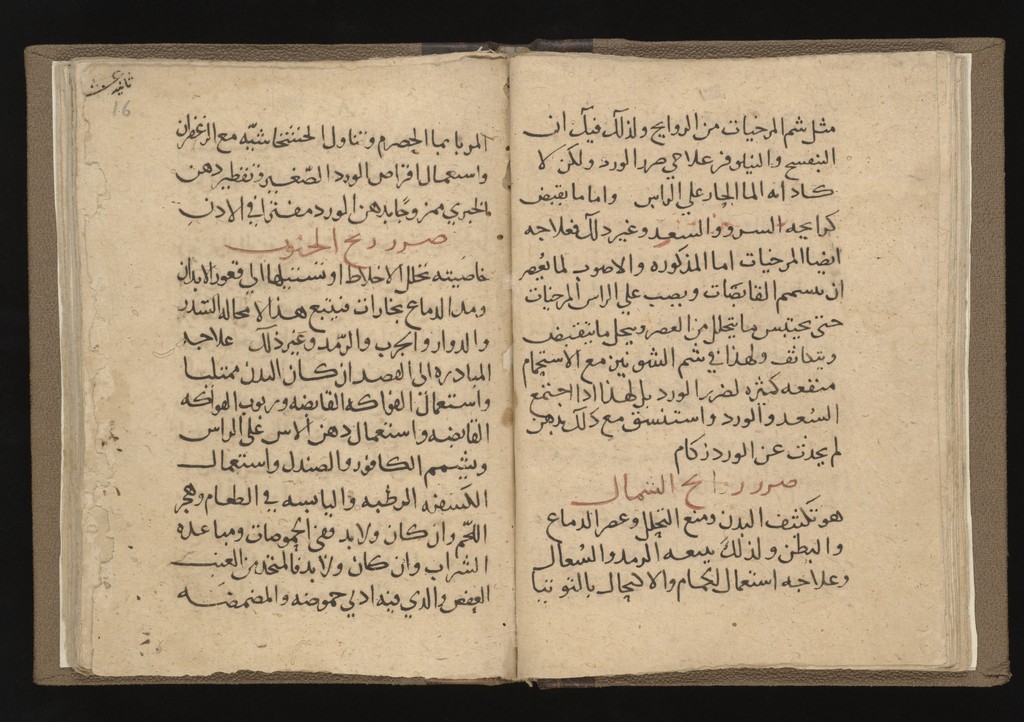 مثل شم المرخيات من الروايح ولذلك فيك ان
البنفسج والنيلوفر علاجي ضرر الورد ولكن لا
كاد انه الما الحار علي الراس واما ما يقبض
كرايحه السرو والسعد وغير ذلك فعلاجه
ايضا المرخيات اما المذكوره والاصوب لما يعصر
ان يسمم القابضات ويصب علي الراس المرخيات
حتي يحتبس ما يتحلل من العصر ويحل ما يتقبض
ويتكاثف ولهذا في شم الشونيز مع الاستحمام
منفعه كثيره لضرر الورد بل لهذا اذا اجتمع
السعد والورد واستنشق مع ذلك بدهن
لم يحدث عن الورد زكام
ضرر ريح الشمال
هو تكثف البدن ومنع التحلل وعصر الدماغ
والبطن ولذلك يتبعه الرمد والسعال
وعلاجه استعمال الحمام والاكتحال بالتوتيا
ثانيه عشر
16
المربا بما الحصرم وتناول الخشخاشيه مع الزعفران
واستعمال اقراص الورد الصغير وتقطير دهن
الخيري ممزوجا بدهن الورد مفترا في الاذن
ضرر ريح الجنوب
خاصيته تحلل الاخلاط او تسييلها الي قعور الابدان
ومد الدماغ بخارات فيتبع هذا لا محاله السدر
والدوار والجرب والرمد وغير ذلك علاجه
المبادره الي الفصد ان كان البدن ممتليا
واستعمال الفواكه القابضه وربوب الفواكه
القابضه واستعمال دهن الاس علي الراس
ويشمم الكافور والصندل واستعمال
الكسفره الرطبه واليابسه في الطعام وهجر
اللحم وان كان ولابد ففي الحموضات ومباعده
الشراب وان كان ولابد فالمتخذ من العنب
العفص والذي فيه ادني حموضه والمضمضه